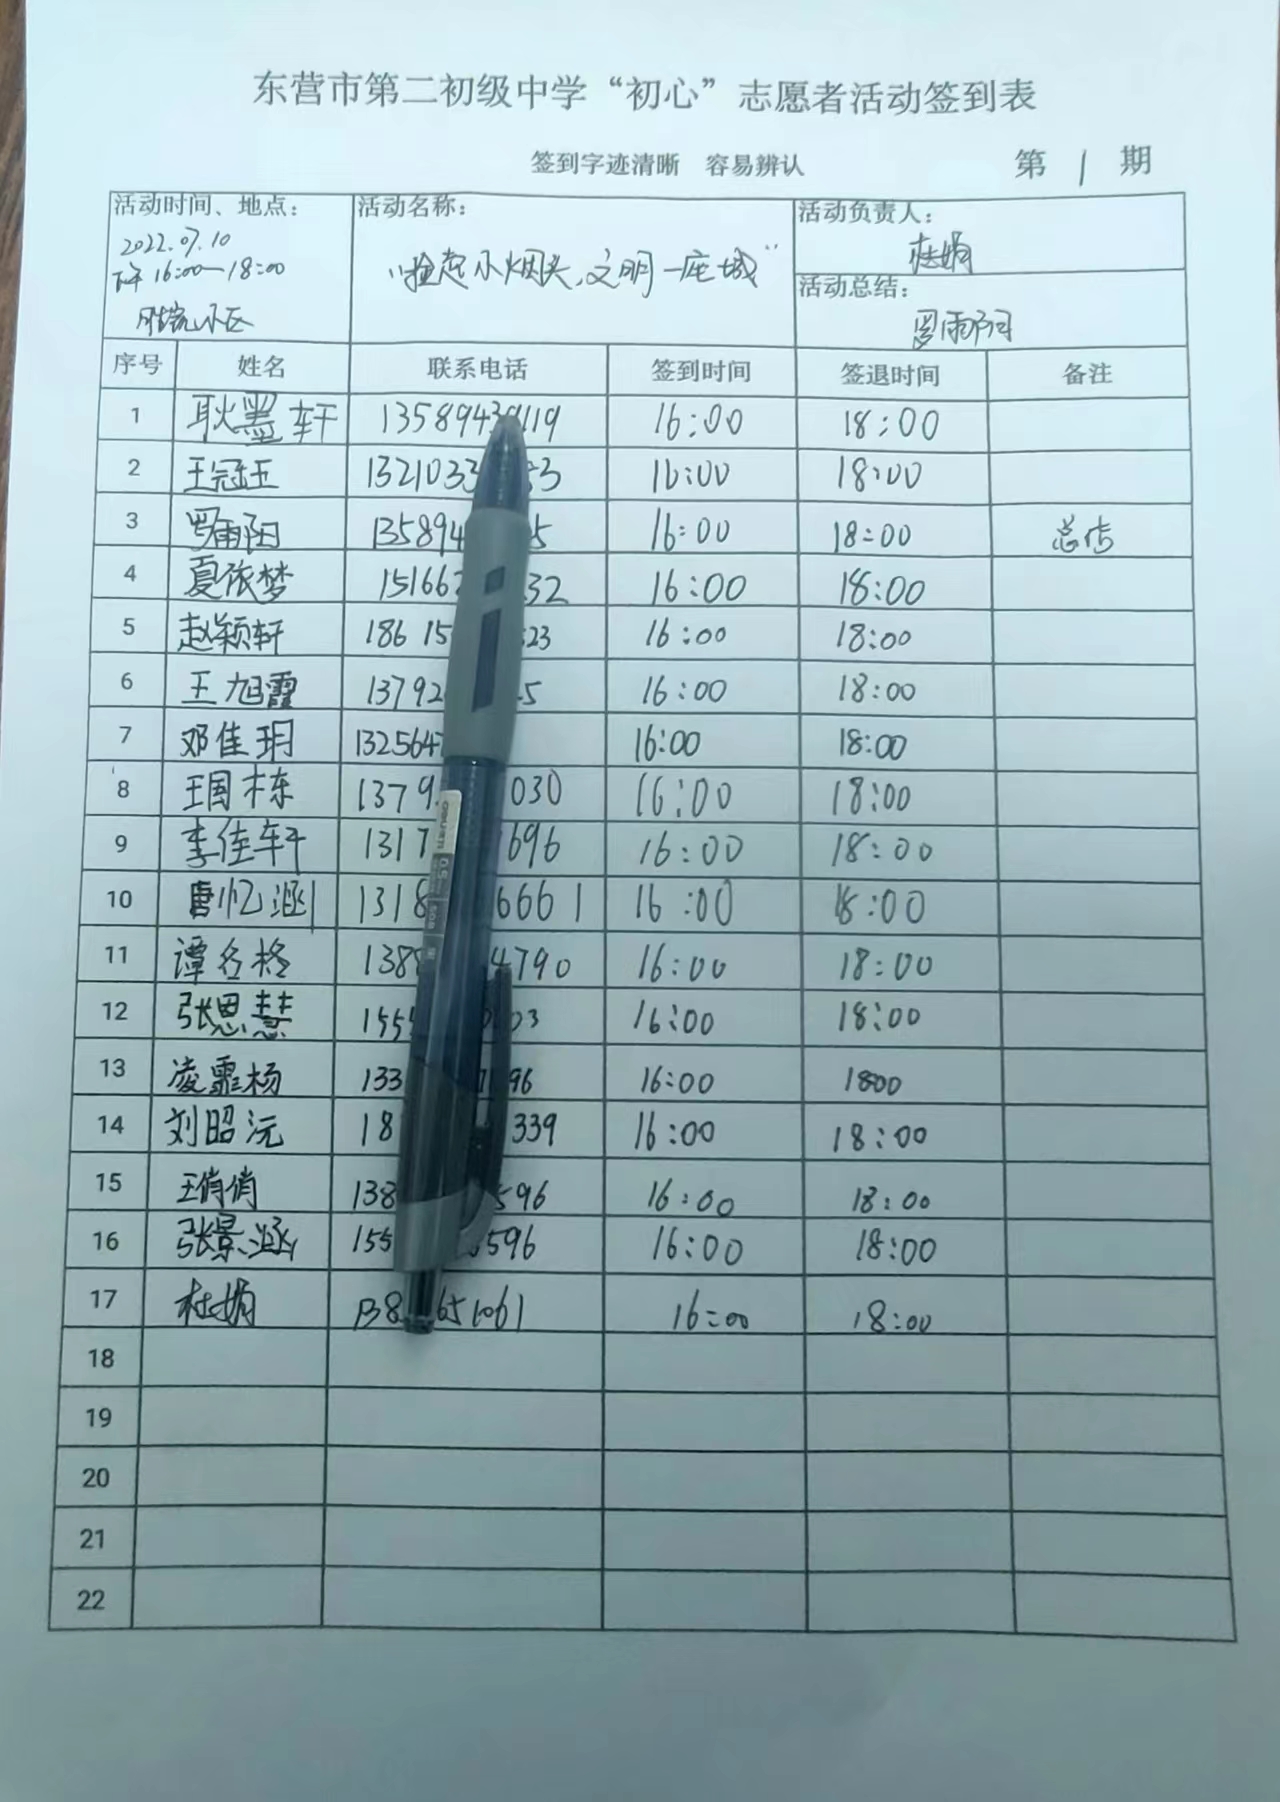 东营市第二初级中学“初心”志愿者活动签到表
签到字迹清晰 容易辨认 第 1 期
活动时间、地点：
2022.07.10
下午16:00—18:00
小区
活动名称：
“捡起小烟头，文明一座城”
活动负责人：
杜娟
活动总结：
罗雨阳
序号 姓名 联系电话 签到时间 签退时间 备注
1 耿墨轩 13589439119 16:00 18:00
2 王冠玉 1321033 3 16:00 18:00
3 罗雨阳 135894 5 16:00 18:00 总结
4 夏依梦 15166 32 16:00 18:00
5 赵颖轩 18615 23 16:00 18:00
6 王旭霞 13792 5 16:00 18:00
7 邓佳玥 1325647 16:00 18:00
8 王国栋 1379 030 16:00 18:00
9 李佳轩 1317 696 16:00 18:00
10 唐忆涵 1318 6661 16:00 18:00
11 谭名格 138 4790 16:00 18:00
12 张思慧 155 03 16:00 18:00
13 凌霏杨 133 96 16:00 1800
14 刘昭沅 18 339 16:00 18:00
15 王俏俏 138 596 16:00 18:00
16 张景涵 155 596 16:00 18:00
17 杜娟 138 651061 16:00 18:00
18
19
20
21
22